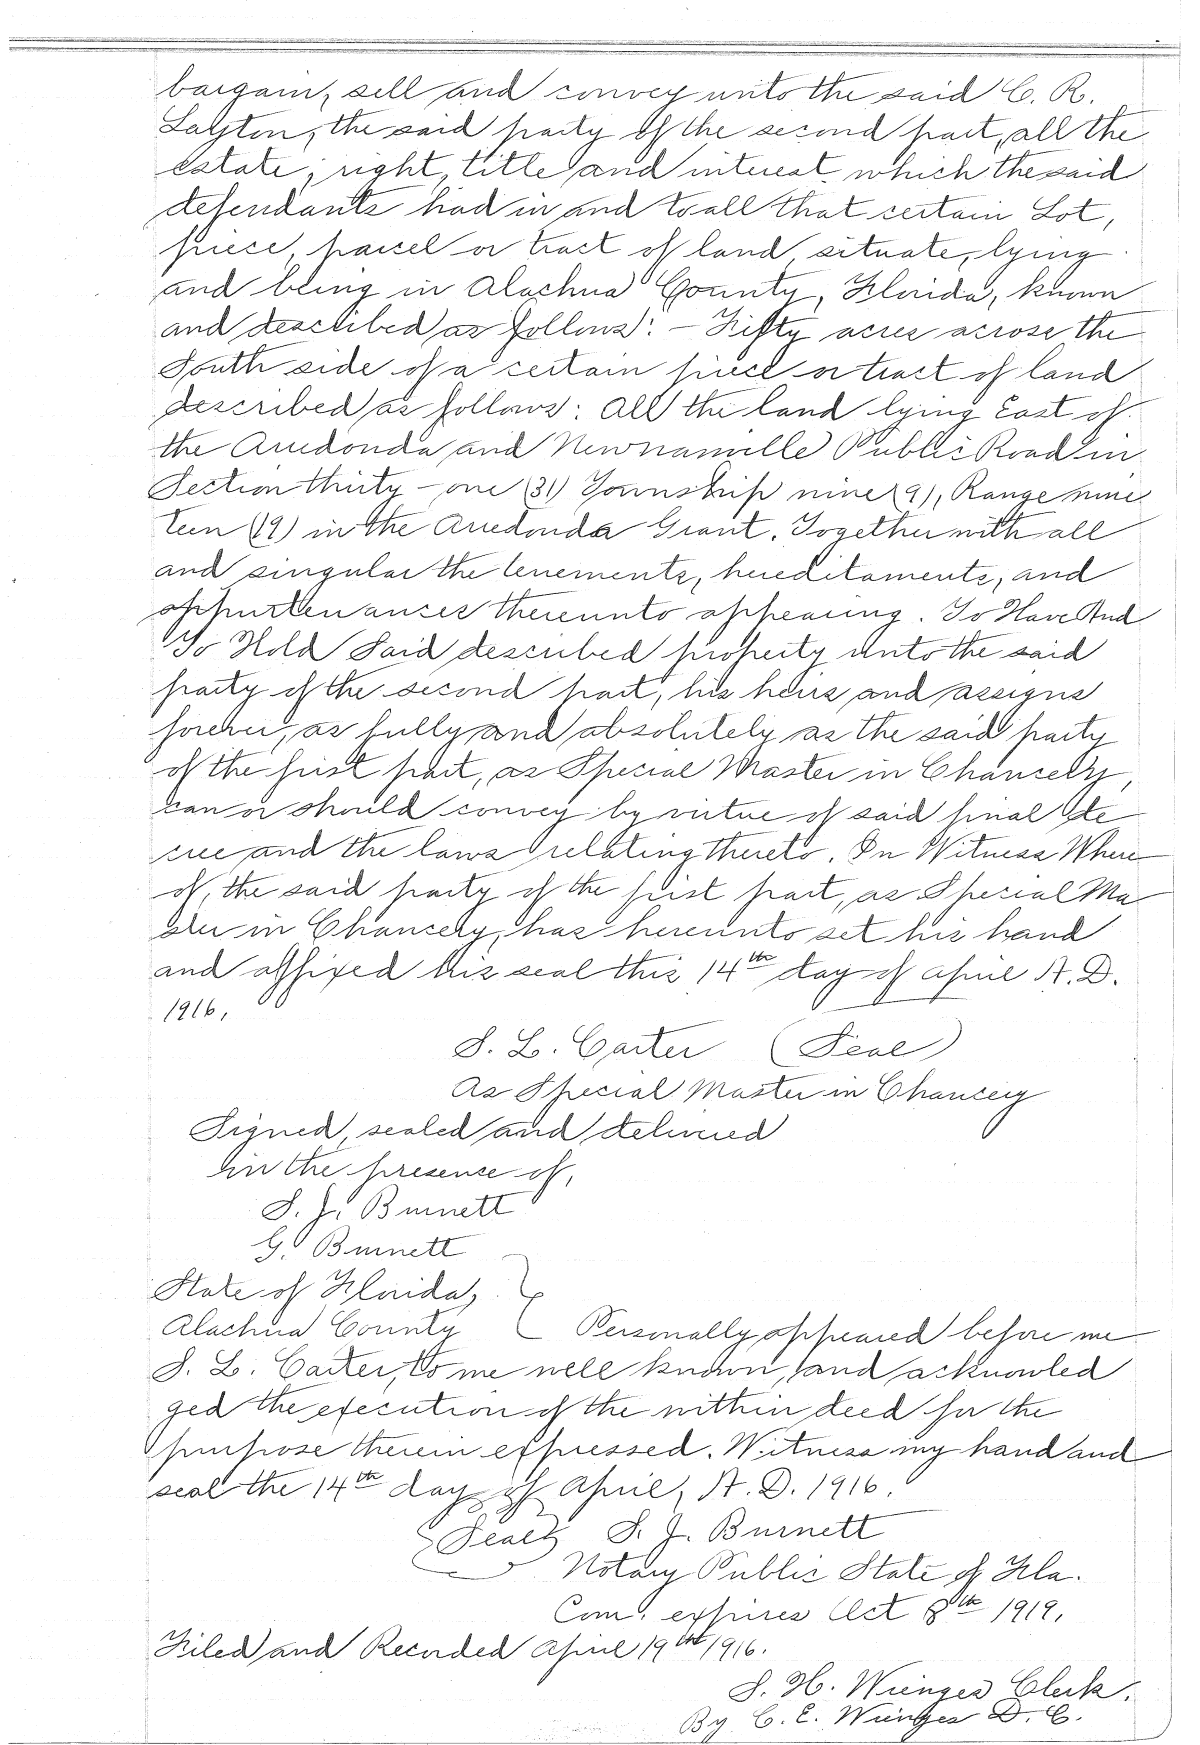 bargain, sell and convey unto the said C. R.
Layton, the said party of the second part, all the
estate, right, title and interest which the said
defendants had in and to all that certain Lot,
piece, parcel or tract of land, situate, lying
and being in Alachua County, Florida, known
and described as follows: - Fifty acres across the
South side of a certain piece or tract of land
described as follows: All the land lying East of
the Arredonda and Newnanville Public Road in
Section thirty-one (31) Township nine (9), Range nine
teen (19) in the Arredonda Grant. Together with all
and singular the tenements, hereditaments, and
appurtenances thereunto appearing. To Have And
To Hold Said described property unto the said
party of the second part, his heirs and assigns
forever, as fully and absolutely as the said party
of the first part, as Special Master in Chancery,
can or should convey by virtue of said final de
cree and the laws relating thereto. In Witness Where
of, the said party of the first part, as Special Ma
ster in Chancery, has hereunto set his hand
and affixed his seal this 14th day of April A.D.
1916,
S. L. Carter (Seal)
As Special Master in Chancery
Signed, sealed and delivered
in the presence of,
S. J. Burnett
G. Burnett
State of Florida,
Alachua County Personally appeared before me
S. L. Carter, to me well known, and acknowled
ged the execution of the within deed for the
purpose therein expressed. Witness my hand and
seal the 14th day of April, A.D. 1916.
Seal S. J. Burnett
Notary Public State of Fla.
Com. expires Oct 8th 1919.
Filed and Recorded April 19th 1916.
S. H. Wienges Clerk.
By C. E. Wienges D. C.